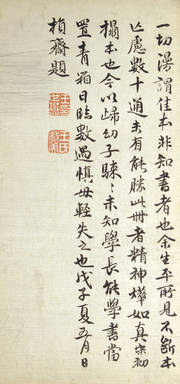 一切漫謂佳本非知書者也余生平所見不斷本
亡慮數十通未有能勝此册者精神燁如真宋初
搨本也今以歸幼子未知學長能學書當
置青箱日臨數過慎毋輕失之也戊子夏五月日
損齋題